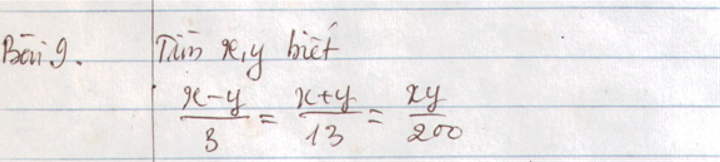 Bài 9. Tìm x, y biết
x-y/3 = x+y/13 = xy/200